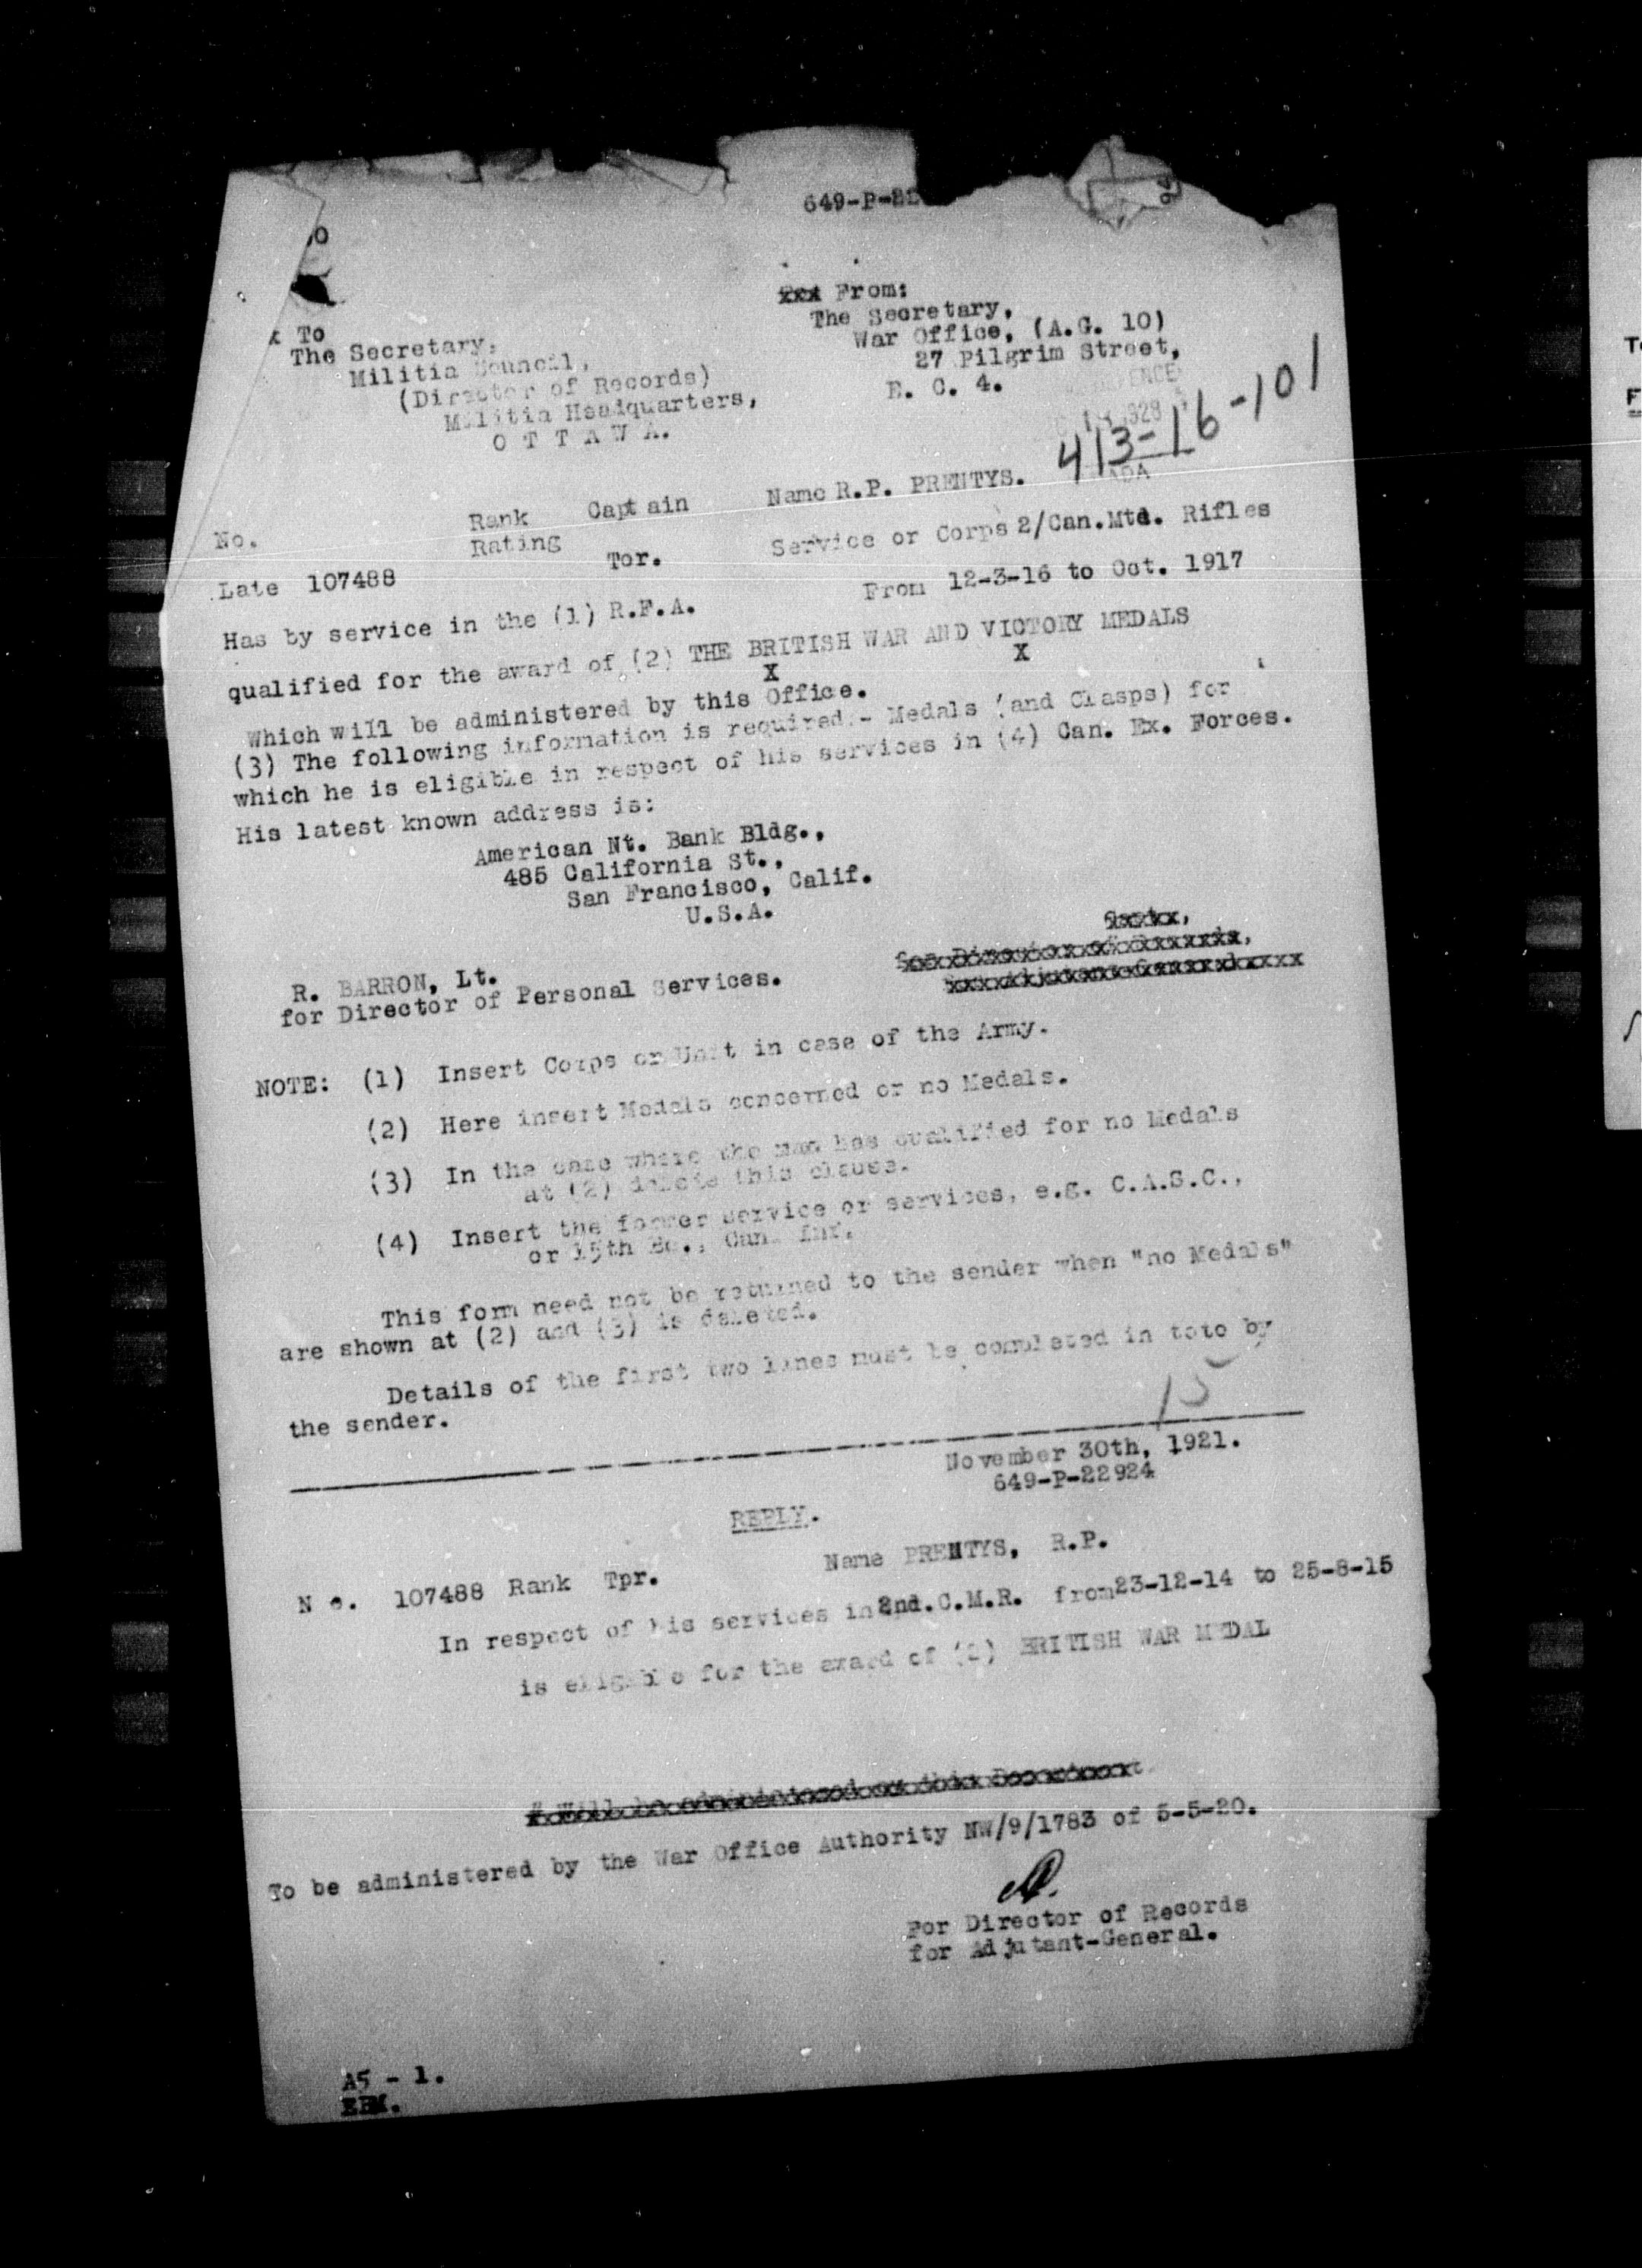 649-P-22
From:
The Secretary,
War Office, (A.G. 10)
27 Pilgrim Street,
E. C. 4.
To
The Secretary,
Militia Council,
(Director of Records)
Militia Headquarters,
O T T A W A.
413-16-101
No. Rank Captain Name R.P. PRENTYS.
Rating Service or Corps 2/Can.Mtd. Rifles
Late 107488 Tor. From 12-3-16 to Oct. 1917
Has by service in the (1) R.F.A.
qualified for the award of (2) THE BRITISH WAR AND VICTORY MEDALS
X X
Which will be administered by this Office.
(3) The following information is required.- Medals (and Clasps) for
which he is eligible in respect of his services in (4) Can. Ex. Forces.
His latest known address is:
American Nt. Bank Bldg.,
485 California St.,
San Francisco, Calif.
U.S.A.
R. BARRON, Lt.
for Director of Personal Services.
NOTE: (1) Insert Corps or Unit in case of the Army.
(2) Here insert Medals concerned or no Medals.
(3) In the case where the man has qualified for no Medals
at (2) delete this clause.
(4) Insert the former service or services, e.g. C.A.S.C.,
or 15th Bn., Can. Inf.
This form need not be returned to the sender when "no Medals"
are shown at (2) and (3) is deleted.
Details of the first two lines must be completed in toto by
the sender.
15
November 30th, 1921.
649-P-22924
REPLY.
Name PRENTYS, R.P.
N o. 107488 Rank Tpr.
In respect of his services in 2nd.C.M.R. from 23-12-14 to 25-8-15
is eligible for the award of (2) BRITISH WAR MEDAL
To be administered by the War Office Authority NW/9/1783 of 5-5-20.
For Director of Records
for Adjutant-General.
A5 - 1.
EBM.